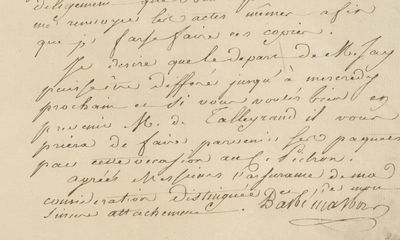 diligemment que vous
me renvoyiez les actes mêmes afin
que je fasse faire ces copies.
Je desire que le depart de M. Jay
puisse être differé jusqu'à mercredy
prochain et si vous voulés bien en
prevenir M. de Talleyrand il vous
priera de faire parvenir ses paquets
par cette occasion au C. Pichon.
agréés Messieurs l'assurance de ma
consideration distinguée et de mon
sincere attachement. Barbé Marbois